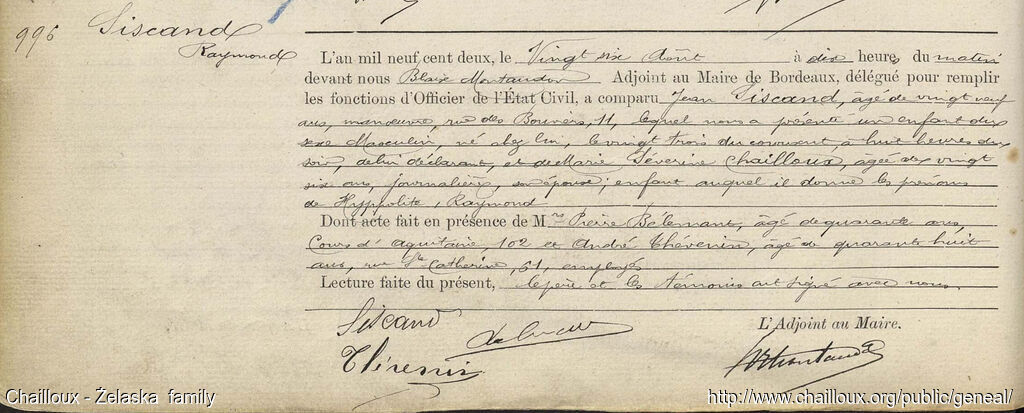 996
Siscand
Raymond
L'an mil neuf cent deux, le Vingt six Août à dix heures du matin
devant nous Blaise Montaudon Adjoint au Maire de Bordeaux, délégué pour remplir
les fonctions d'Officier de l'État Civil, a comparu Jean Siscand, âgé de vingt neuf
ans, manœuvre, rue des Bouviers, 11, lequel nous a présenté un enfant du
sexe Masculin, né chez lui, le vingt trois du courant, à huit heures du
soir, de lui déclarant, et de Marie Séverine Chailloux, âgée de vingt
six ans, journalière, son épouse; enfant auquel il donne les prénoms
de Hyppolite, Raymond
Dont acte fait en présence de M.rs Pierre âgé de quarante ans,
Cours d'Aquitaine, 102 et André Thévenin, âgé de quarante huit
ans, rue Ste Catherine, 61, employés
Lecture faite du présent, le père et les témoins ont signé avec nous.
Siscand
L'Adjoint au Maire.
Thévenin
Chailloux - Żelaska family
http://www.chailloux.org/public/geneal/